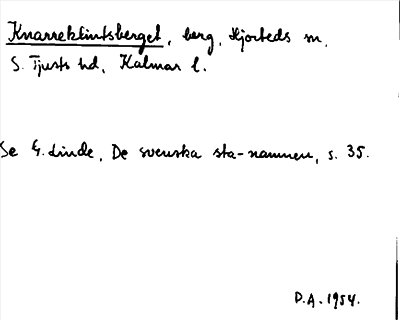 Knarreklintsberget, berg, Hjorteds sn.
S. Tjusts hd, Kalmar l.
Se G. Linde, De svenska sta-namnen, s. 35.
D.A. 1954.